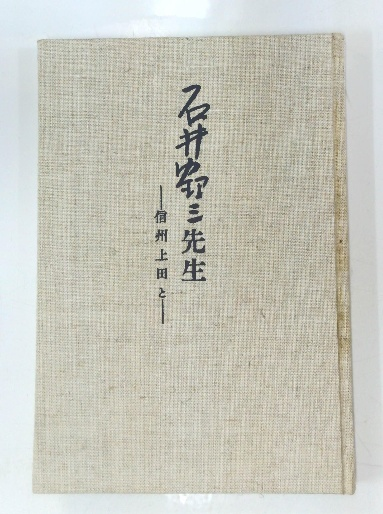 石井鶴三先生
—信州上田と—